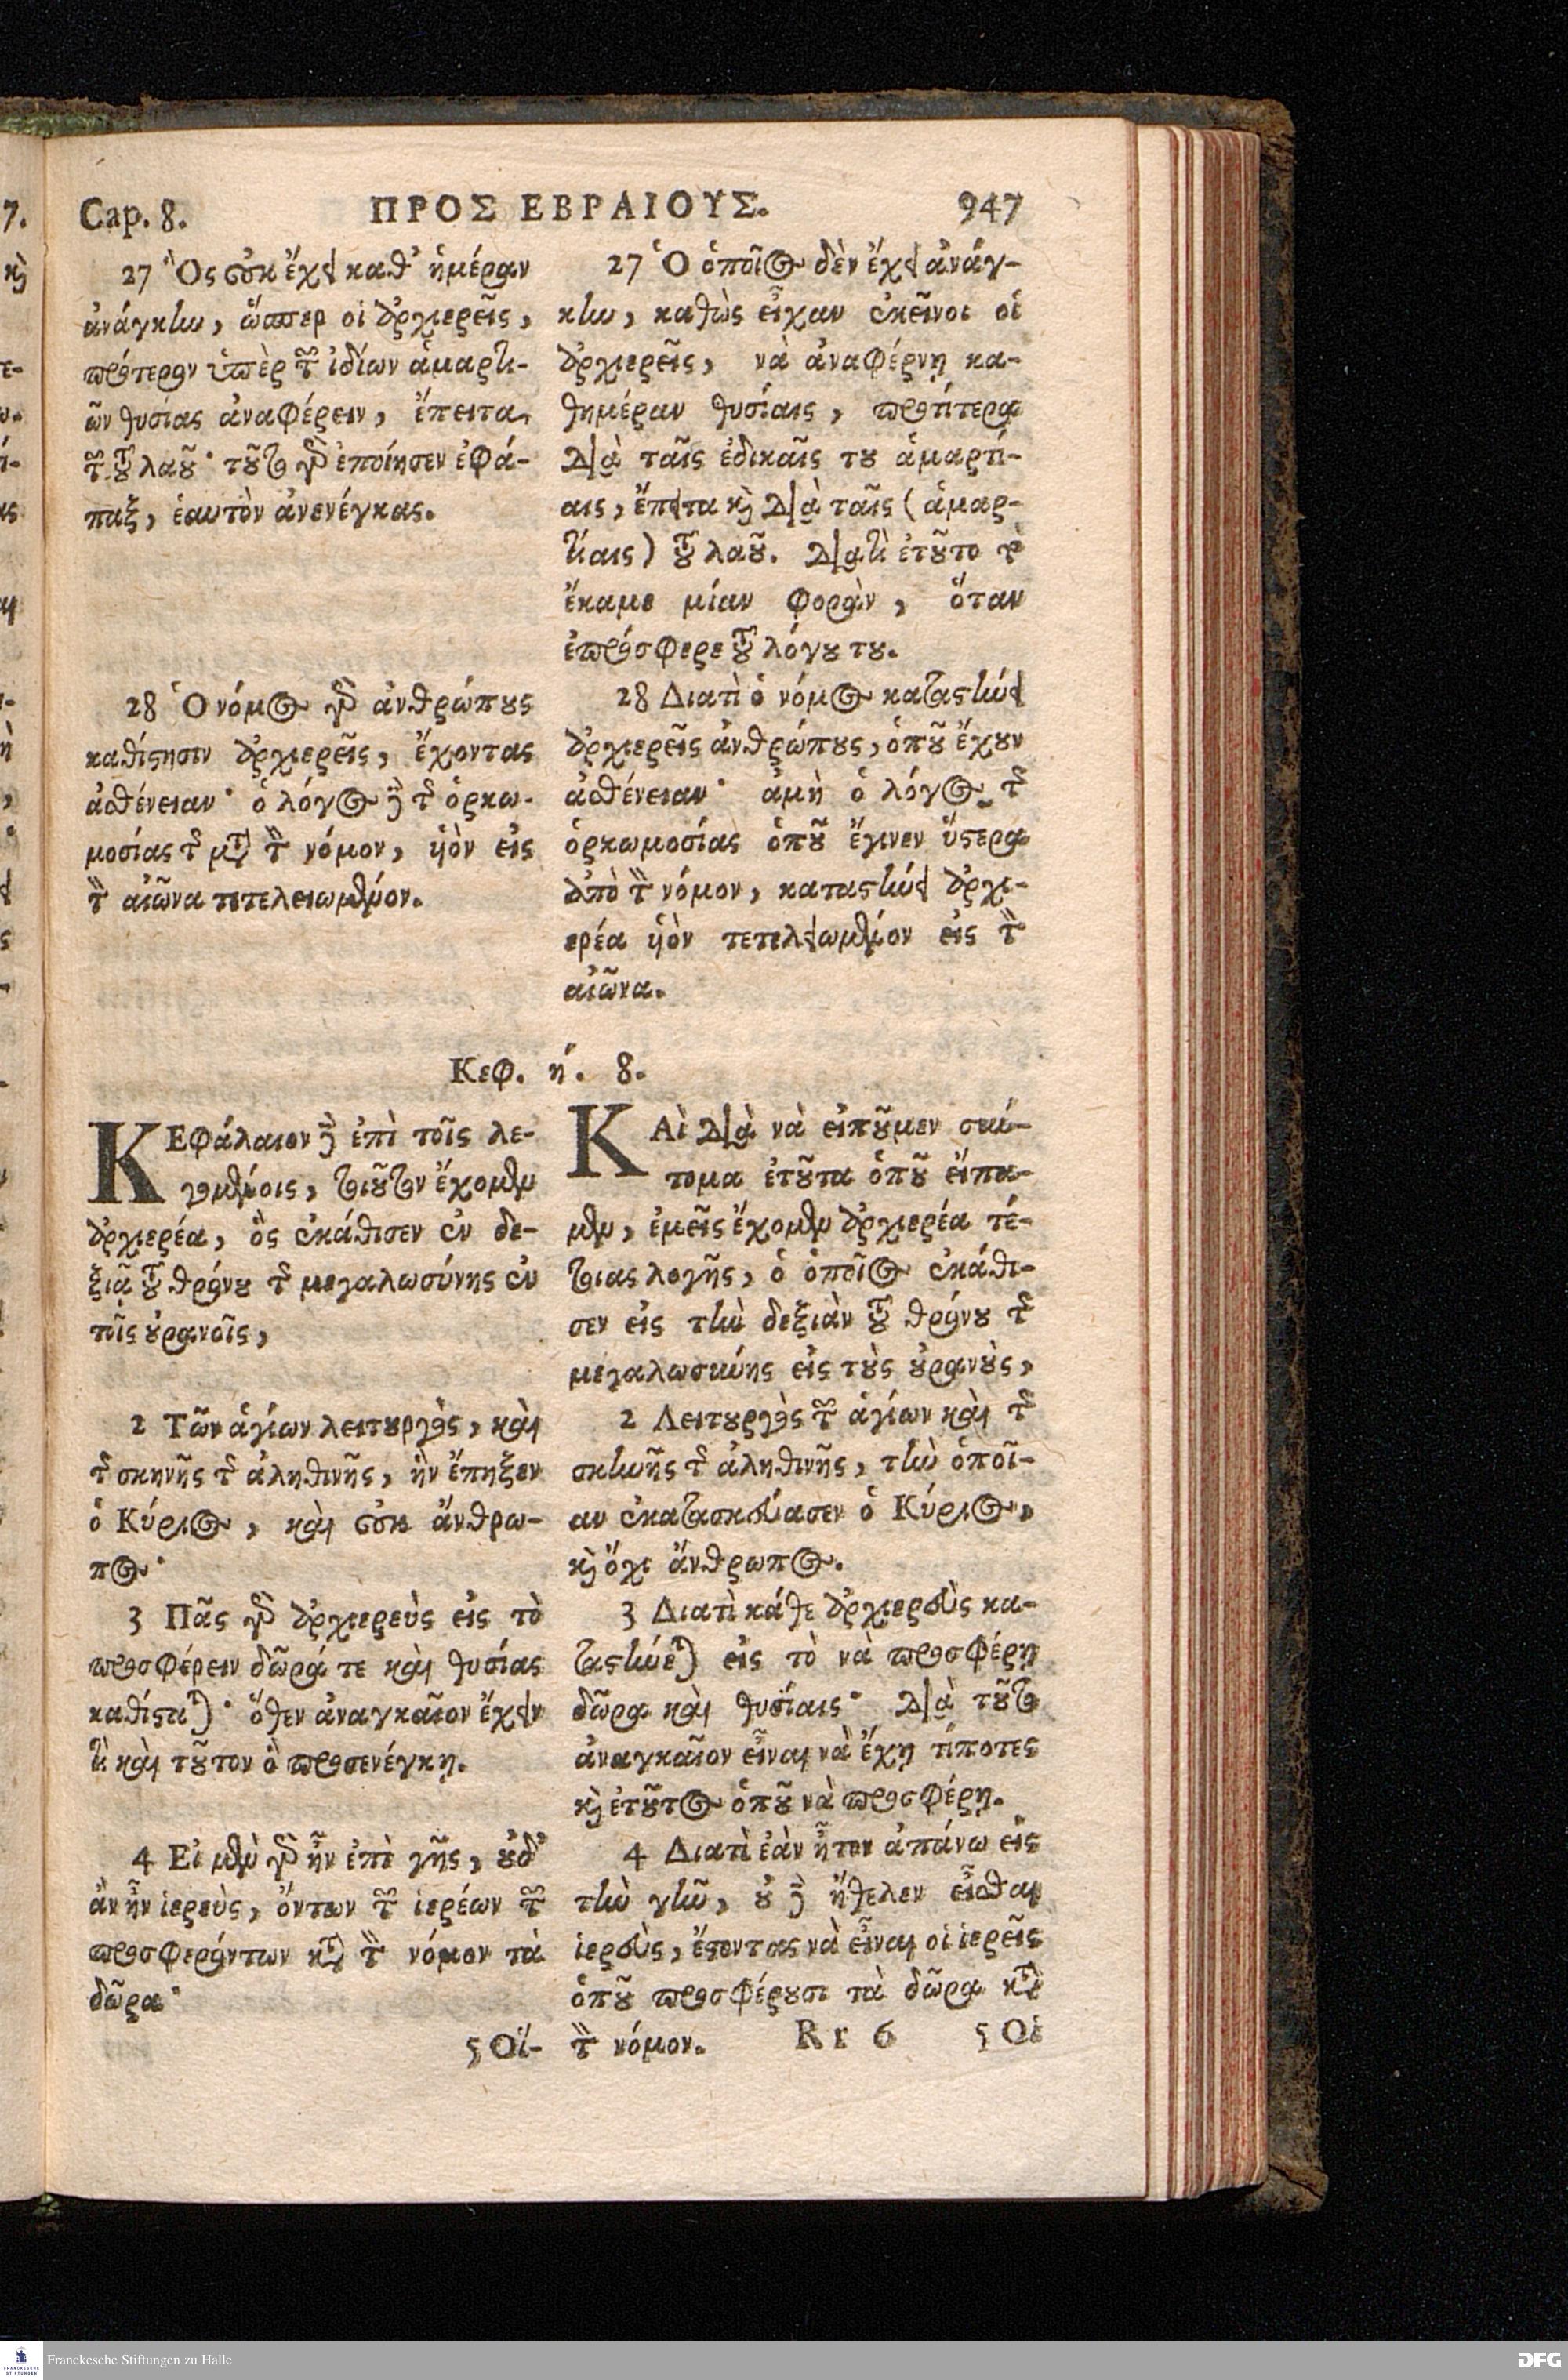 Cap. 8. ΠΡΟΣ ΕΒΡΑΙΟΥΣ. 947
27 Ὃς οὐκ ἔχει καθ' ἡμέραν
ἀνάγκην, ὥσπερ οἱ ἀρχιερεῖς,
πρότερον ὑπὲρ τῶν ἰδίων ἁμαρτι-
ῶν θυσίας ἀναφέρειν, ἔπειτα
τῶν τοῦ λαοῦ· τοῦτο γὰρ ἐποίησεν ἐφά-
παξ, ἑαυτὸν ἀνενέγκας.
28 Ὁ νόμος γὰρ ἀνθρώπους
καθίστησιν ἀρχιερεῖς, ἔχοντας
ἀσθένειαν· ὁ λόγος δὲ τῆς ὁρκω-
μοσίας τῆς μετὰ τὸν νόμον, υἱὸν εἰς
τὸν αἰῶνα τετελειωμένον.
27 Ὁ ὁποῖος δὲν ἔχει ἀνάγ-
κην, καθὼς εἶχαν ἐκεῖνοι οἱ
ἀρχιερεῖς, νὰ ἀναφέρνῃ κα-
θημέραν θυσίαις, προτίτερα
διὰ ταῖς ἐδικαῖς του ἁμαρτί-
αις, ἔπειτα καὶ διὰ ταῖς (ἁμαρ-
τίαις) τοῦ λαοῦ. Διατὶ ἐτοῦτο τὸ
ἔκαμε μίαν φορὰν, ὅταν
ἐπρόσφερε τοῦ λόγου του.
28 Διατὶ ὁ νόμος καταστήνει
ἀρχιερεῖς ἀνθρώπους, ὁποῦ ἔχουν
ἀσθένειαν· ἀμὴ ὁ λόγος τῆς
ὁρκωμοσίας ὁποῦ ἔγινεν ὕστερα
ἀπὸ τὸν νόμον, καταστήνει ἀρχι-
ερέα υἱὸν τετελειωμένον εἰς τὸν
αἰῶνα.
Κεφ. ή. 8.
ΚΕφάλαιον δὲ ἐπὶ τοῖς λε-
γομένοις, τοιοῦτον ἔχομεν
ἀρχιερέα, ὃς ἐκάθισεν ἐν δε-
ξιᾷ τοῦ θρόνου τῆς μεγαλωσύνης ἐν
τοῖς οὐρανοῖς,
2 Τῶν ἁγίων λειτουργὸς, καὶ
τῆς σκηνῆς τῆς ἀληθινῆς, ἣν ἔπηξεν
ὁ Κύριος, καὶ οὐκ ἄνθρω-
πος·
3 Πᾶς γὰρ ἀρχιερεὺς εἰς τὸ
προσφέρειν δῶρά τε καὶ θυσίας
καθίσταται· ὅθεν ἀναγκαῖον ἔχειν
τὶ καὶ τοῦτον ὃ προσενέγκῃ.
4 Εἰ μὲν γὰρ ἦν ἐπὶ γῆς, οὐδ'
ἂν ἦν ἱερεὺς, ὄντων τῶν ἱερέων τῶν
προσφερόντων κατὰ τὸν νόμον τὰ
δῶρα·
5 Οἵ-
ΚΑὶ διὰ νὰ εἰποῦμεν σύν-
τομα ἐτοῦτα ὁποῦ εἴπα-
μεν, ἐμεῖς ἔχομεν ἀρχιερέα τέ-
τοιας λογῆς, ὁ ὁποῖος ἐκάθι-
σεν εἰς τὴν δεξιὰν τοῦ θρόνου τῆς
μεγαλωσύνης εἰς τοὺς οὐρανοὺς,
2 Λειτουργὸς τῶν ἁγίων καὶ τῆς
σκηνῆς τῆς ἀληθινῆς, τὴν ὁποῖ-
αν ἐκατασκεύασεν ὁ Κύριος,
καὶ ὄχι ἄνθρωπος.
3 Διατὶ κάθε ἀρχιερεὺς κα-
ταστήνεται εἰς τὸ νὰ προσφέρῃ
δῶρα καὶ θυσίαις· διὰ τοῦτο
ἀναγκαῖον εἶναι νὰ ἔχῃ τίποτες
καὶ ἐτοῦτος ὁποῦ νὰ προσφέρῃ.
4 Διατὶ ἐὰν ἦτον ἀπάνω εἰς
τὴν γῆν, οὐδὲ ἤθελεν εἶσθαι
ἱερεὺς, ἔστοντας νὰ εἶναι οἱ ἱερεῖς
ὁποῦ προσφέρουσι τὰ δῶρα κατὰ
τὸν νόμον. Rr 6 5 Οἱ
Franckesche Stiftungen zu Halle
DFG